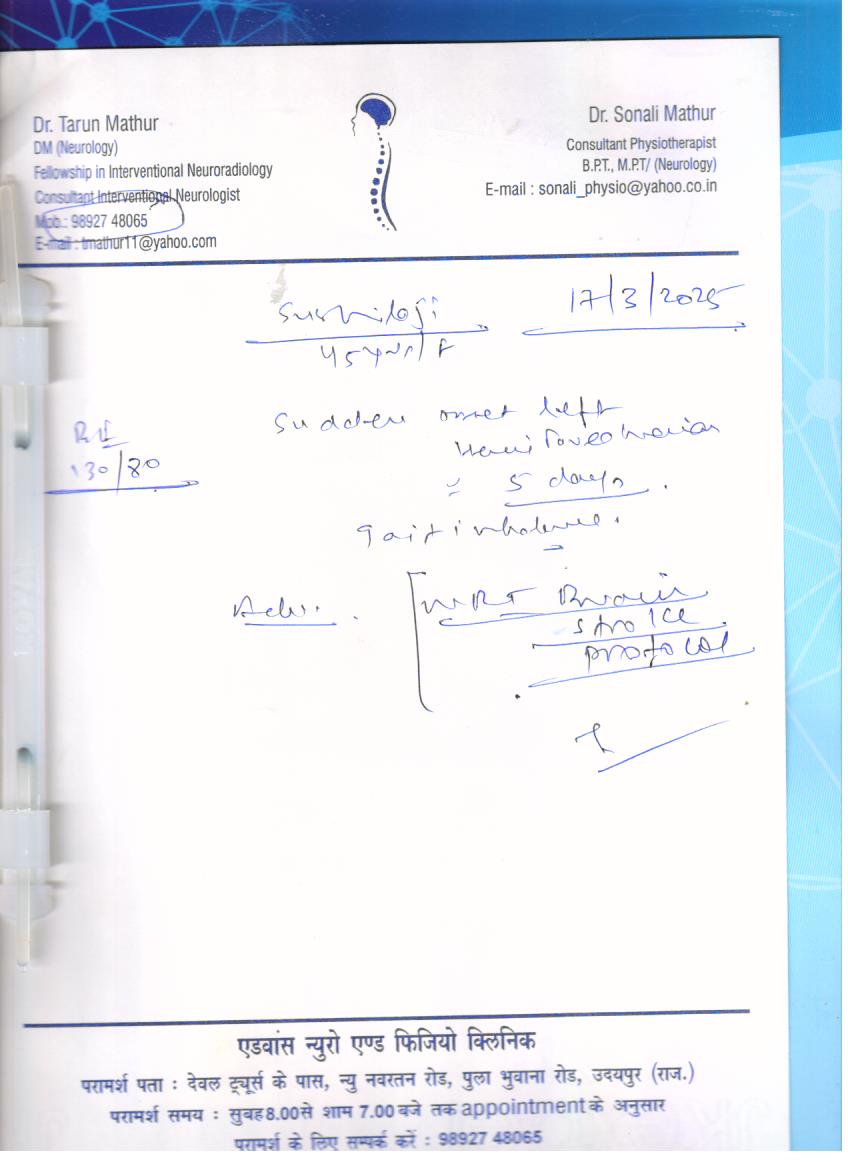 Dr. Tarun Mathur
DM (Neurology)
Fellowship in Interventional Neuroradiology
Consultant Interventional Neurologist
Mob.: 98927 48065
E-mail : tmathur11@yahoo.com
Dr. Sonali Mathur
Consultant Physiotherapist
B.P.T., M.P.T/ (Neurology)
E-mail : sonali_physio@yahoo.co.in
17/3/2025
45 yrs/F
130/80
Sudden onset left
5 days.
gait imbalance.
Adv.
MRI Brain
stroke
protocol
एडवांस न्युरो एण्ड फिजियो क्लिनिक
परामर्श पता : देवल ट्यूर्स के पास, न्यु नवरतन रोड, पुला भुवाना रोड, उदयपुर (राज.)
परामर्श समय : सुबह 8.00 से शाम 7.00 बजे तक appointment के अनुसार
परामर्श के लिए सम्पर्क करें : 98927 48065